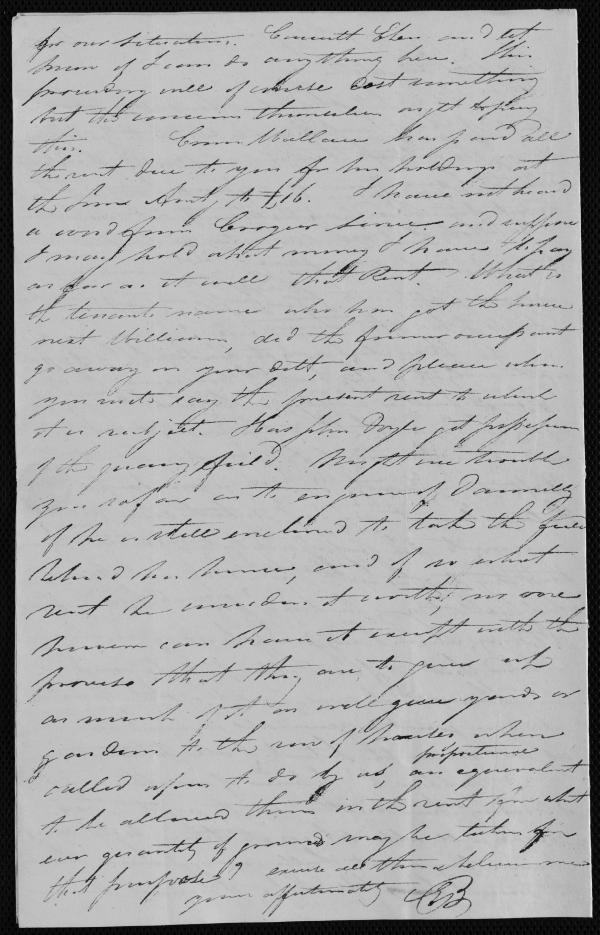 for our situation. Consult Eben and let
know if I can do anything here. This
providing will of course cost something
but the concerns themselves ought to pay
this. Wallace has paid all
the rent due to you for his holdings at
the £16. I have not heard
a word from since and suppose
I may hold what money I have to pay
as far as it will that Rent. What is
the tenants name who has got the house
next Williams, did the former occupant
go away in your debt, and please when
you write say the present rent to which
it is subject. Has John Doyle got possession
of the quarry field. Might we trouble
you so far as to enquire of Donnelly
if he is still inclined to take the field
behind his house, and if so what
rent he considers it worth, no one
however can have it except with the
proviso that they are to give up
as much of it as will give yards or
gardens to the row of houses when
called upon to do by us, an equivalent
proportioned
to be allowed them in the rent for what
ever quantity of ground may be taken for
that purpose? excuse all this & believe me
yours affectionately